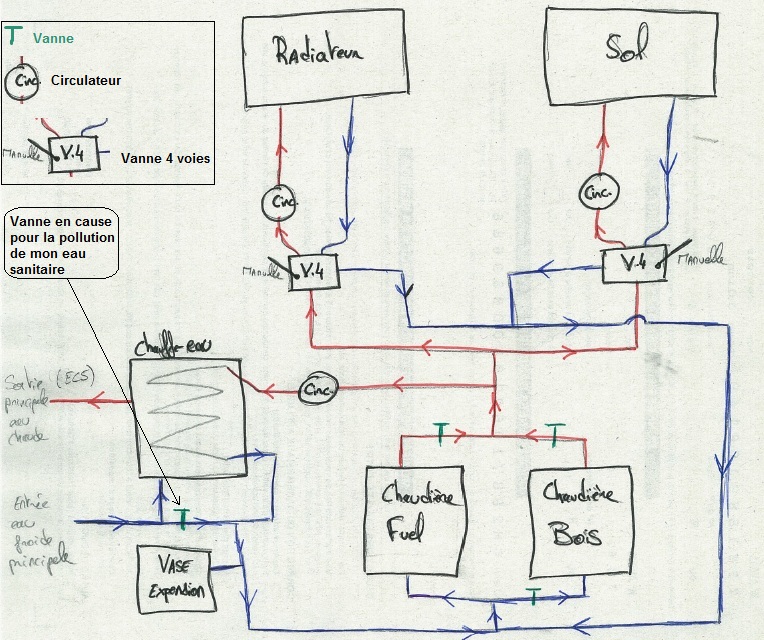 T Vanne
Circ. Circulateur
Manuelle V.4 Vanne 4 voies
Radiateur
Sol
Circ.
Circ.
Vanne en cause
pour la pollution
de mon eau
sanitaire
Manuelle V.4
V.4 Manuelle
Chauffe-eau
Circ.
Sortie (ECS)
principale
eau
chaude
T T
Chaudière
Fuel
Chaudière
Bois
Entrée
eau
froide
principale
T
Vase
Expension
T